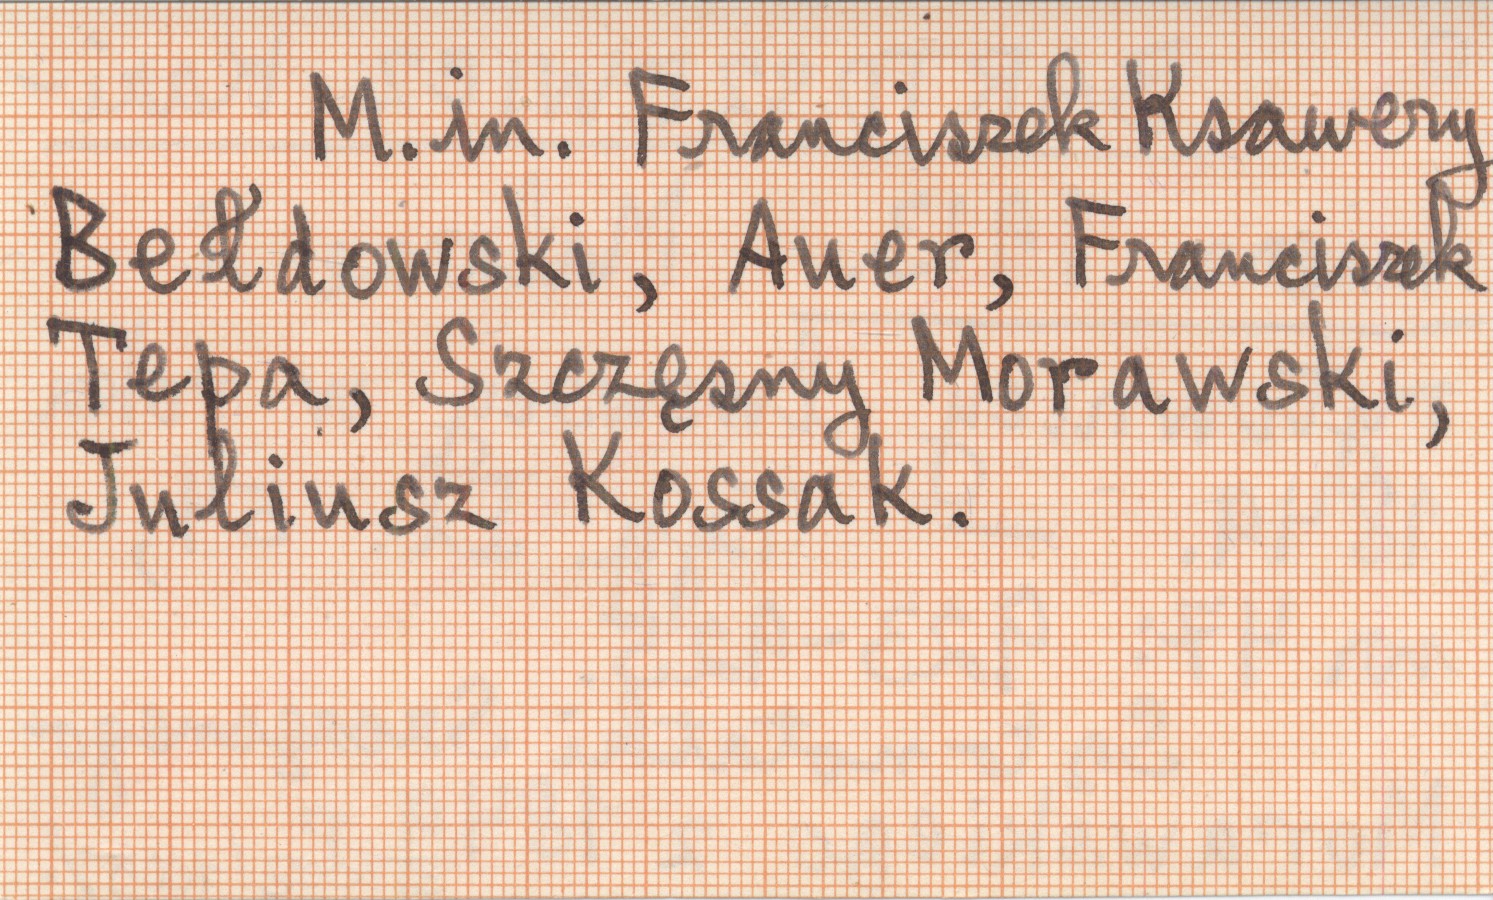 M.in. Franciszek Ksawery
Bełdowski, Auer, Franciszek
Tepa, Szczęsny Morawski,
Juliusz Kossak.